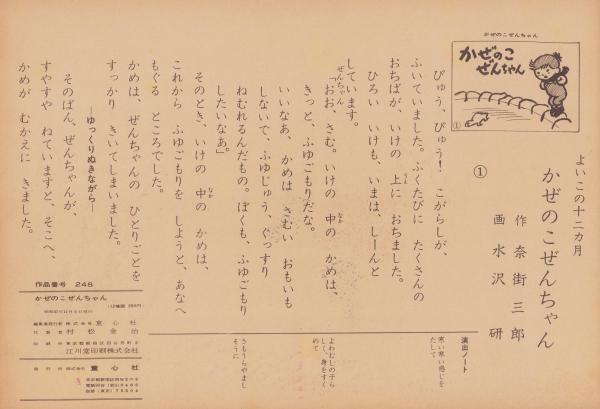 かぜのこぜんちゃん
かぜのこ
ぜんちゃん
①
よいこの十二カ月
かぜのこぜんちゃん
作 奈街三郎
画 水沢 研
①
ぴゅう、ぴゅう! こがらしが、
ふいていました。ふくたびに たくさんの
おちばが、いけの 上に おちました。
ひろい いけも、いまは、しーんと
しています。
ぜんちゃん「おお、さむ。いけの 中の かめは、
きっと、ふゆごもりだな。
いいなあ、かめは さむい おもいも
しないで、ふゆじゅう、ぐっすり
ねむれるんだもの。ぼくも、ふゆごもり
したいなあ」
そのとき、いけの 中の かめは、
これから ふゆごもりを しようと、あなへ
もぐる ところでした。
かめは、ぜんちゃんの ひとりごとを
すっかり きいてしまいました。
―ゆっくりぬきながら―
そのばん、ぜんちゃんが、
すやすや ねていますと、そこへ、
かめが むかえに きました。
演出ノート
寒い寒い感じを
だして
よわむしの子ら
しく、身をすく
めて
さもうらやまし
そうに
作品番号 248
かぜのこぜんちゃん
株式会社 童心社
村松金治
江川堂印刷株式会社
童心社